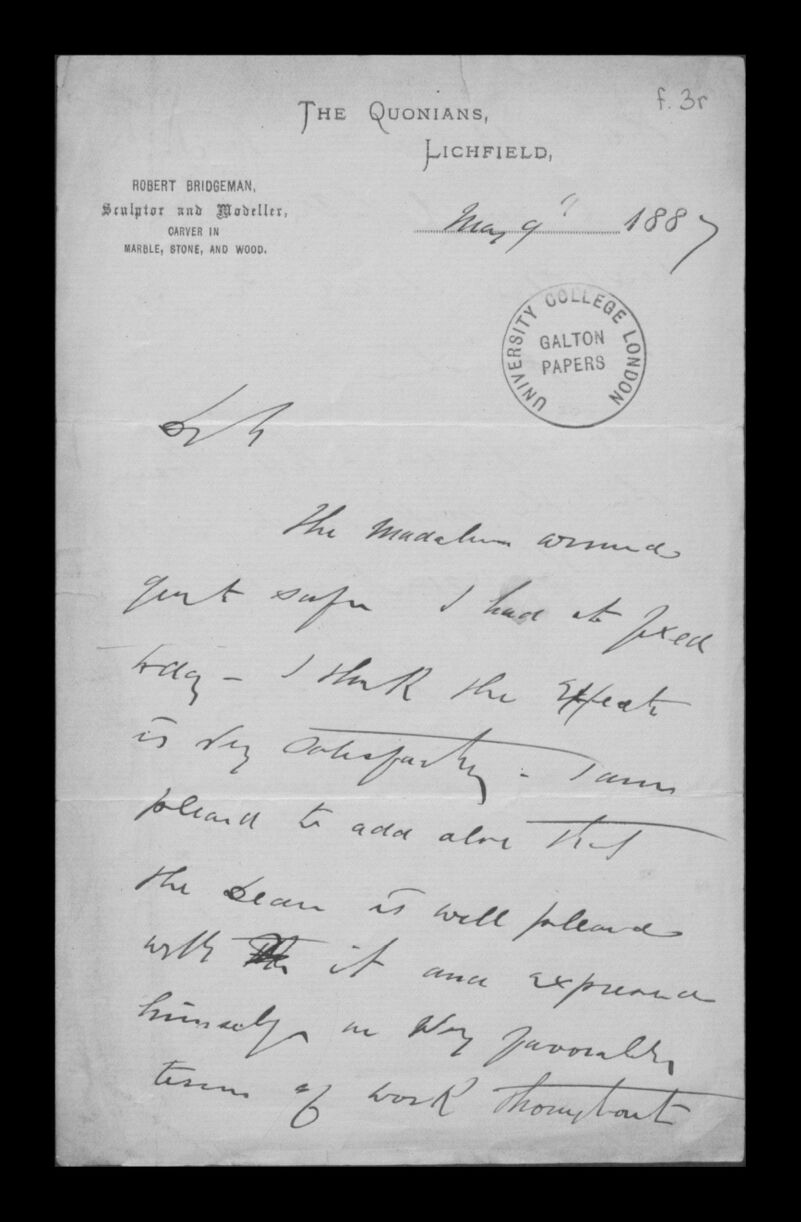 f. 3r
THE QUONIANS,
LICHFIELD,
ROBERT BRIDGEMAN,
Sculptor and Modeller,
CARVER IN
MARBLE, STONE, AND WOOD.
May 9th 1887
UNIVERSITY COLLEGE LONDON
GALTON
PAPERS
Dr Sir
The Medalion arrived
quit safe I had it fixed
today - I think the Effect
is very satisfactory - I am
pleased to add also that
the Dean is well pleased
with it and expressed
himself in very favorable
terms of work throughout